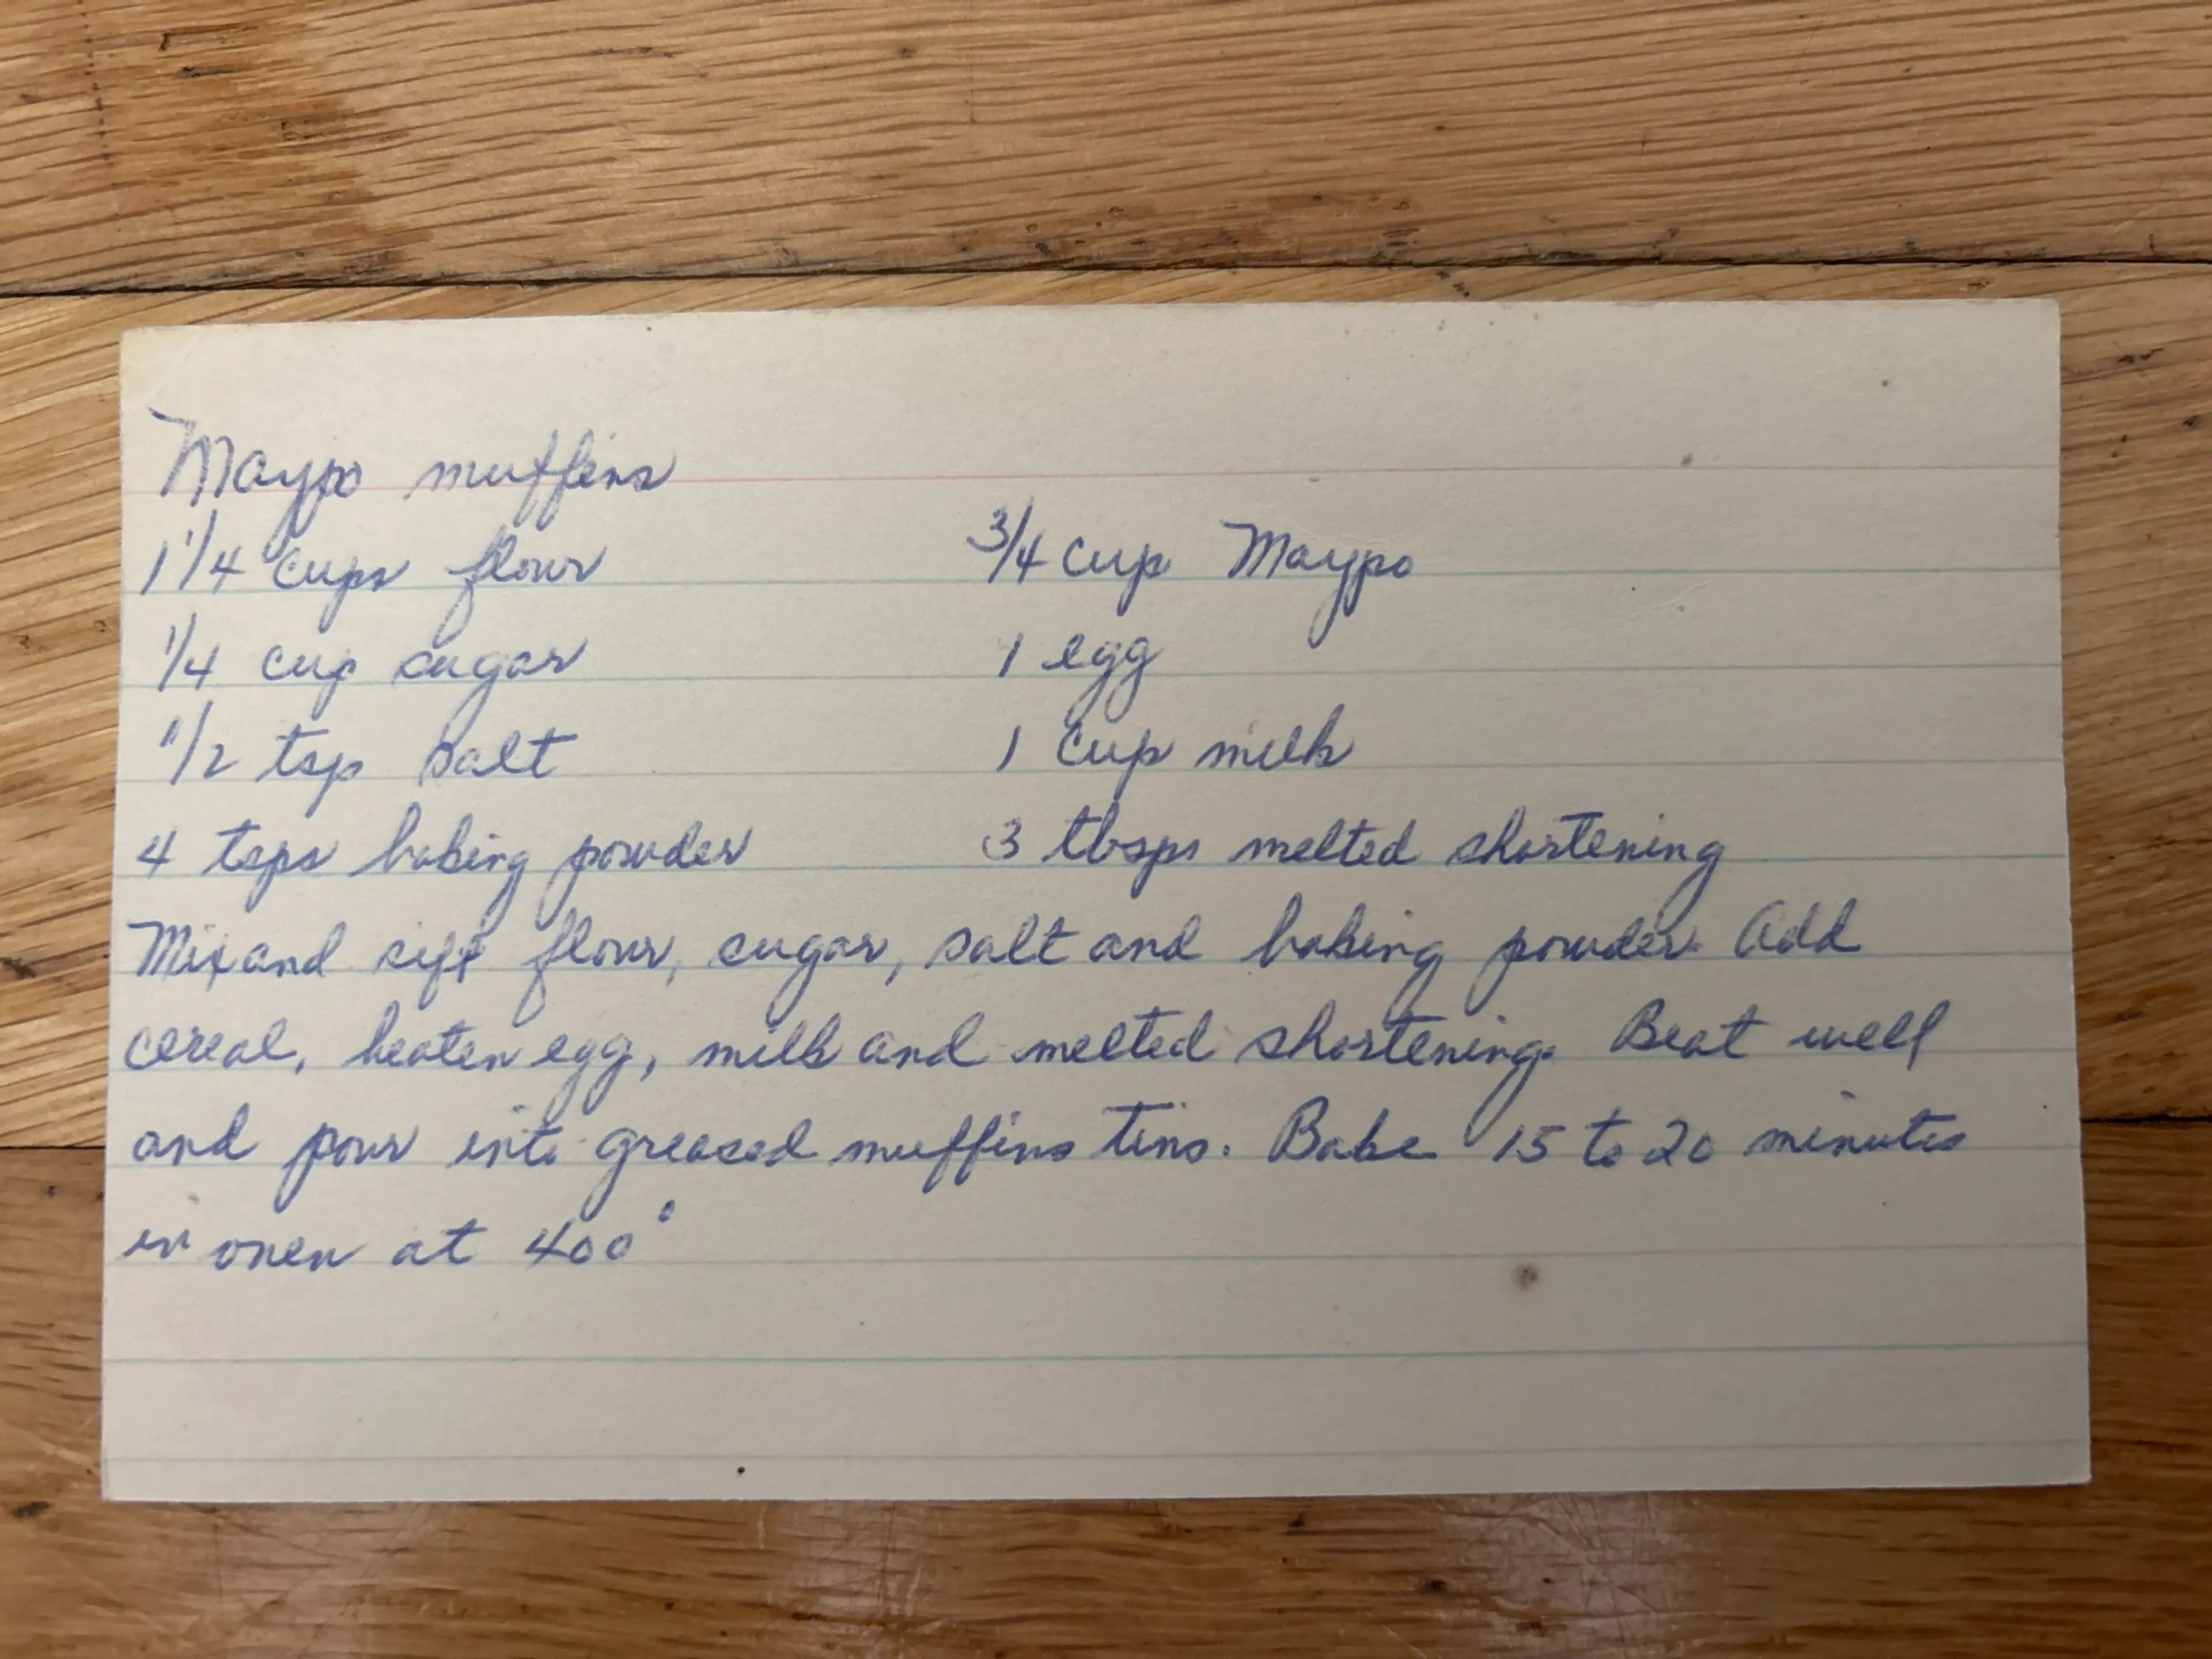 Maypo muffins
1 1/4 cups flour 3/4 cup Maypo
1/4 cup sugar 1 egg
1/2 tsp salt 1 cup milk
4 tsps baking powder 3 tbsps melted shortening
Mix and sift flour, sugar, salt and baking powder. Add
cereal, beaten egg, milk and melted shortening. Beat well
and pour into greased muffins tins. Bake 15 to 20 minutes
in oven at 400°